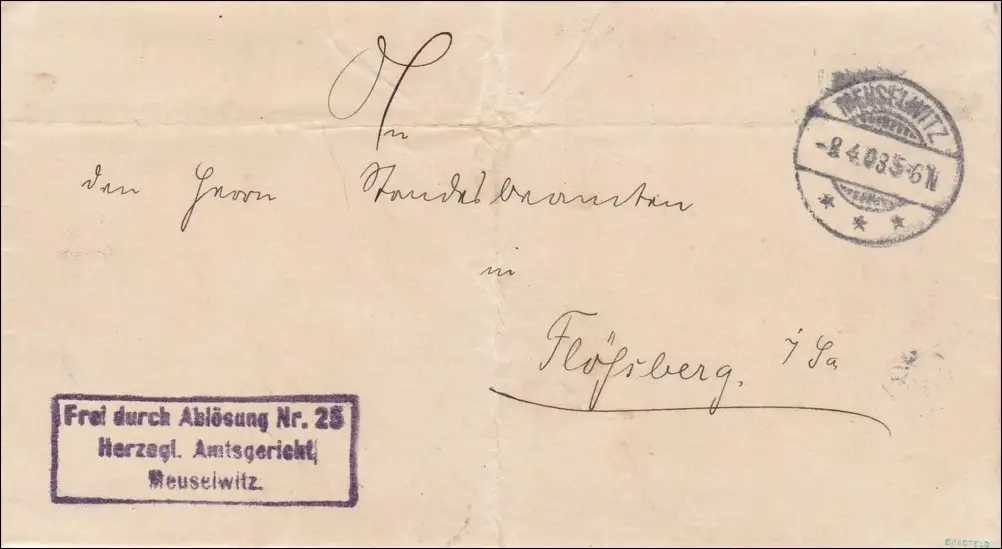 An
den Herrn Standesbeamten
in
Flößberg. i/Sa
MEUSELWITZ
-8.4.03.5-6N
Frei durch Ablösung Nr. 25
Herzogl. Amtsgericht
Meuselwitz.